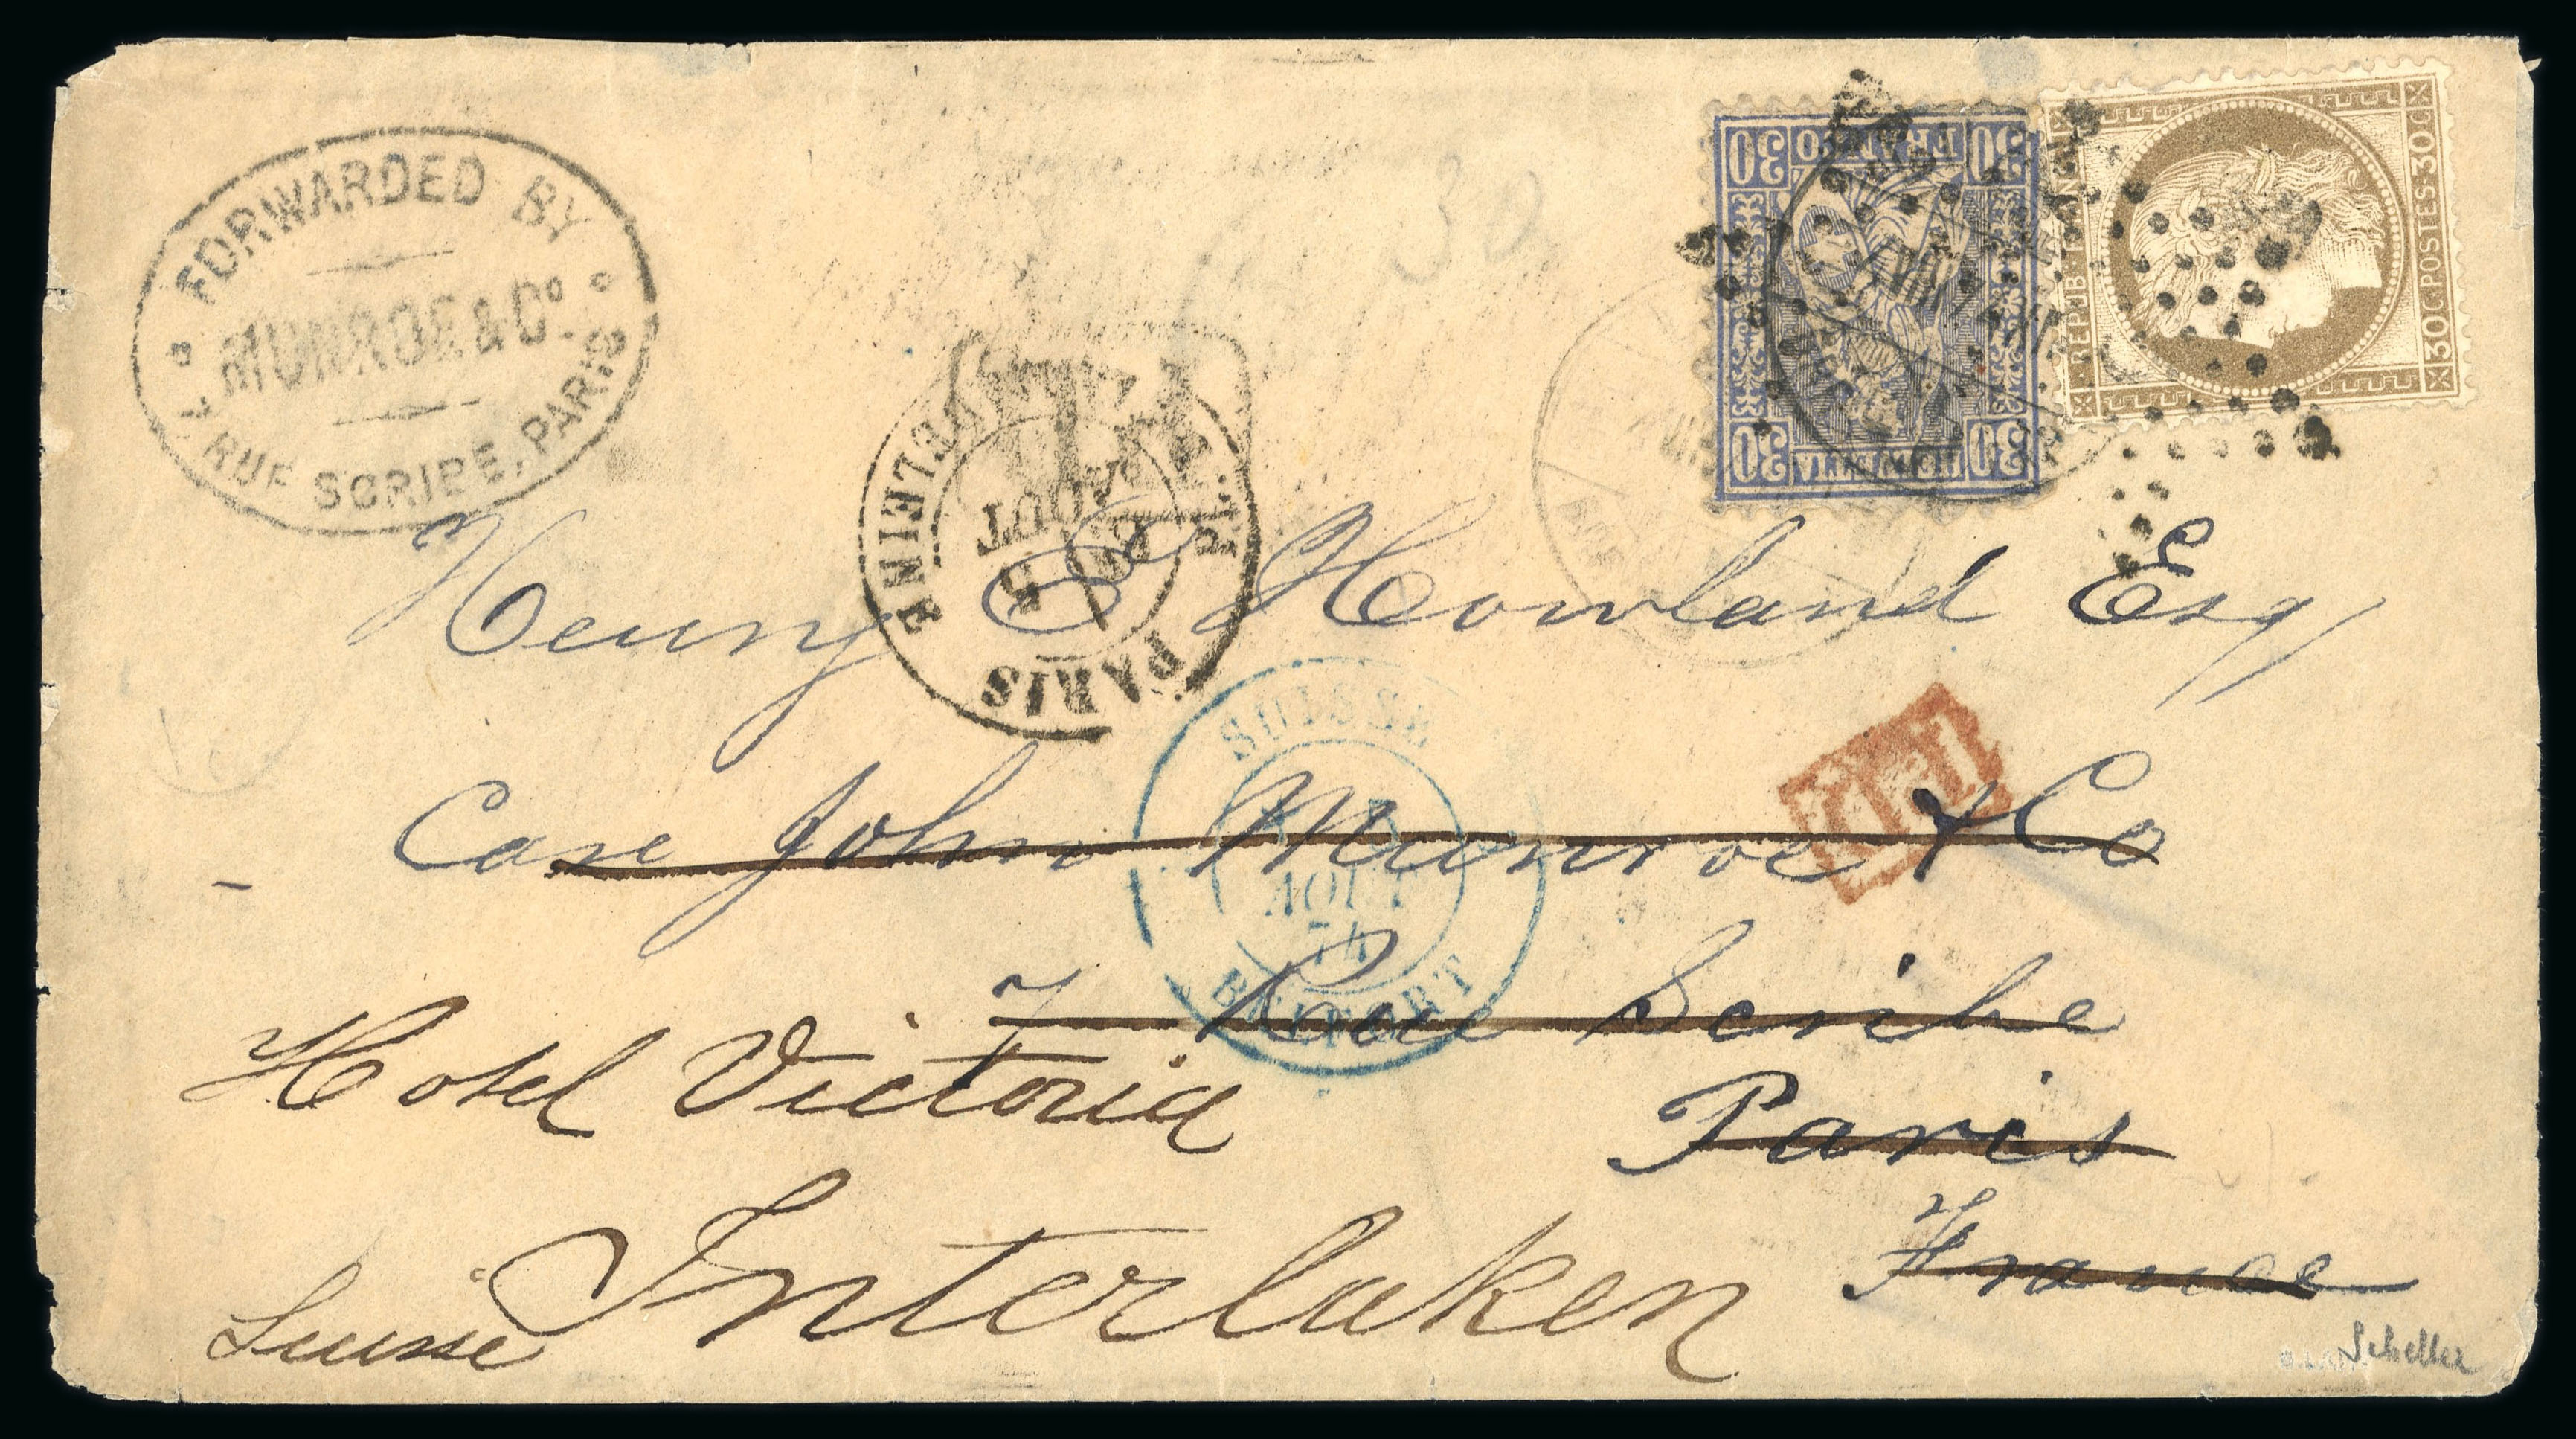 FORWARDED BY
MUNROE & Co.
7, RUE SCRIBE, PARIS
30
30 FRANCO 30
30 HELVETIA 30
REPUB. FRANC.
30 C. POSTES. 30 C.
PARIS
AOUT
Henry S Howland Esq
SUISSE
AOUT
74
BELFORT
Care John Munroe & Co
7 Rue Scribe
Paris
France
Hotel Victoria
Interlaken
Suisse
Scheller